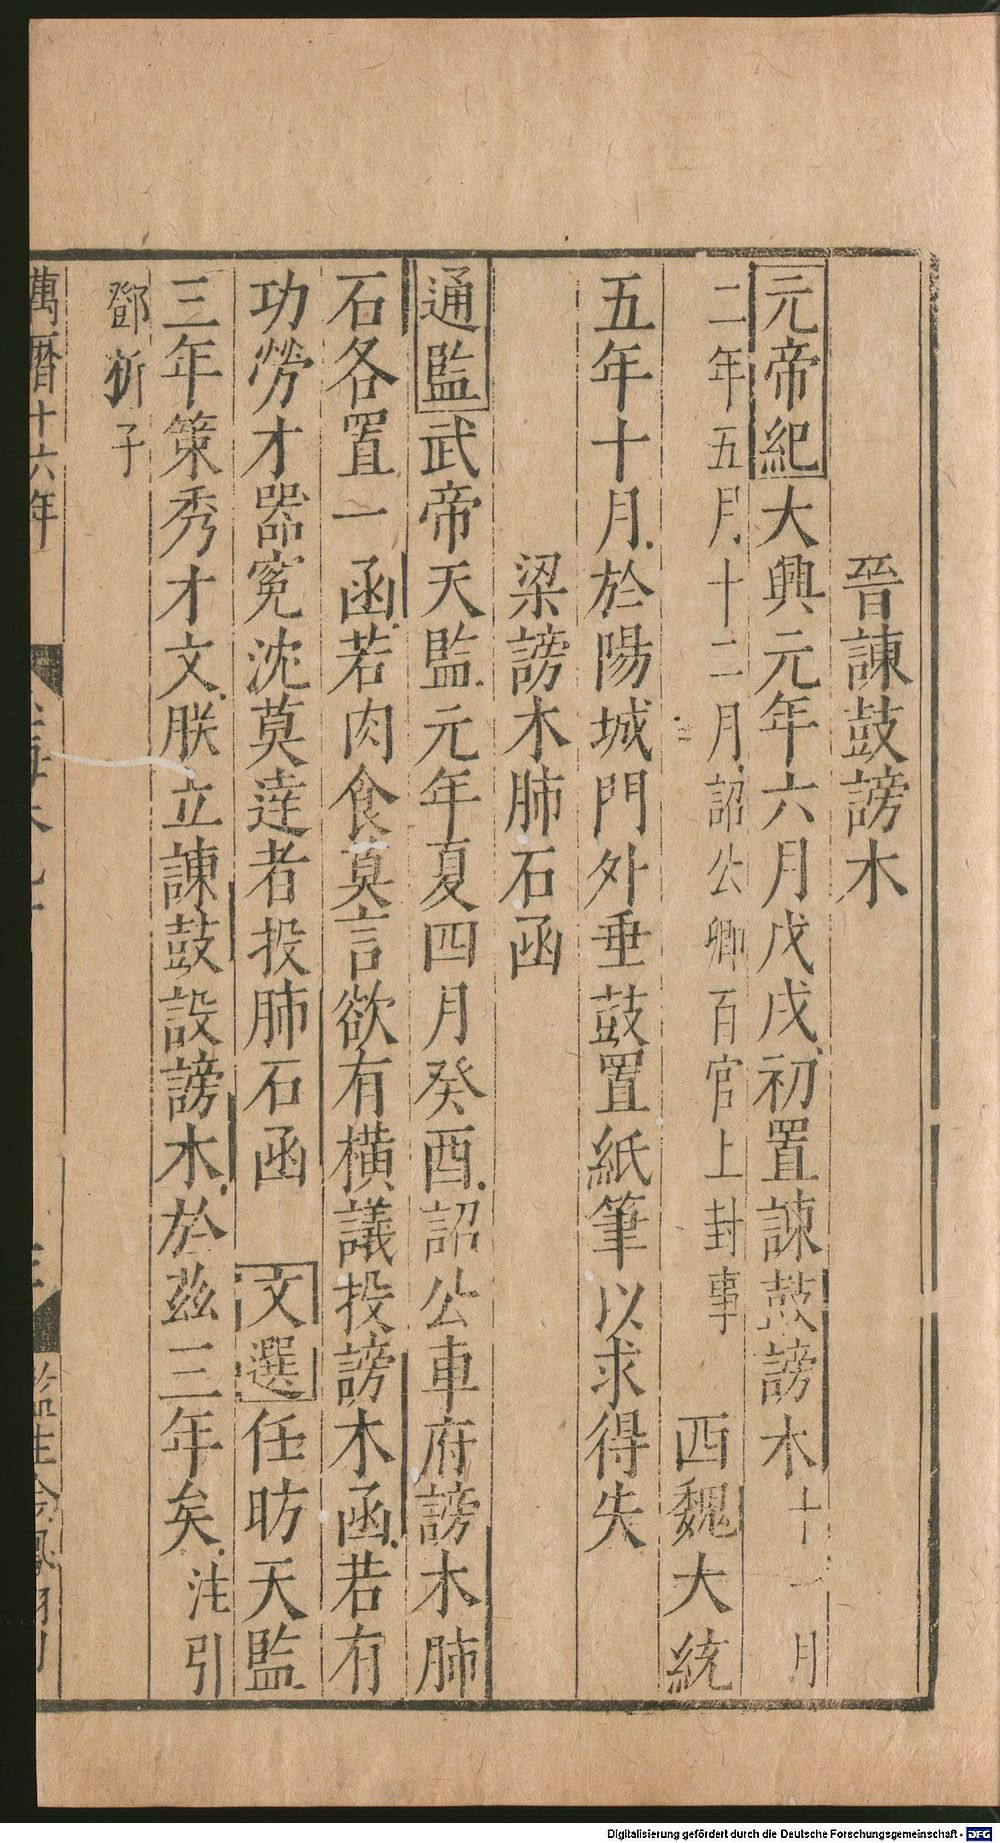 晉諫鼓謗木
元帝紀大興元年六月戊戌初置諫鼓謗木十一月
二年五月十二月詔公卿百官上封事　西魏大統
五年十月於陽城門外垂鼓置紙筆以求得失
梁謗木肺石函
通監武帝天監元年夏四月癸酉詔公車府謗木肺
石各置一函若肉食莫言欲有橫議投謗木函若有
功勞才器寃沈莫達者投肺石函　文選任昉天監
三年策秀才文朕立諫鼓設謗木於茲三年矣注引
鄧析子
萬曆十六年
Digitalisierung gefördert durch die Deutsche Forschungsgemeinschaft - DFG